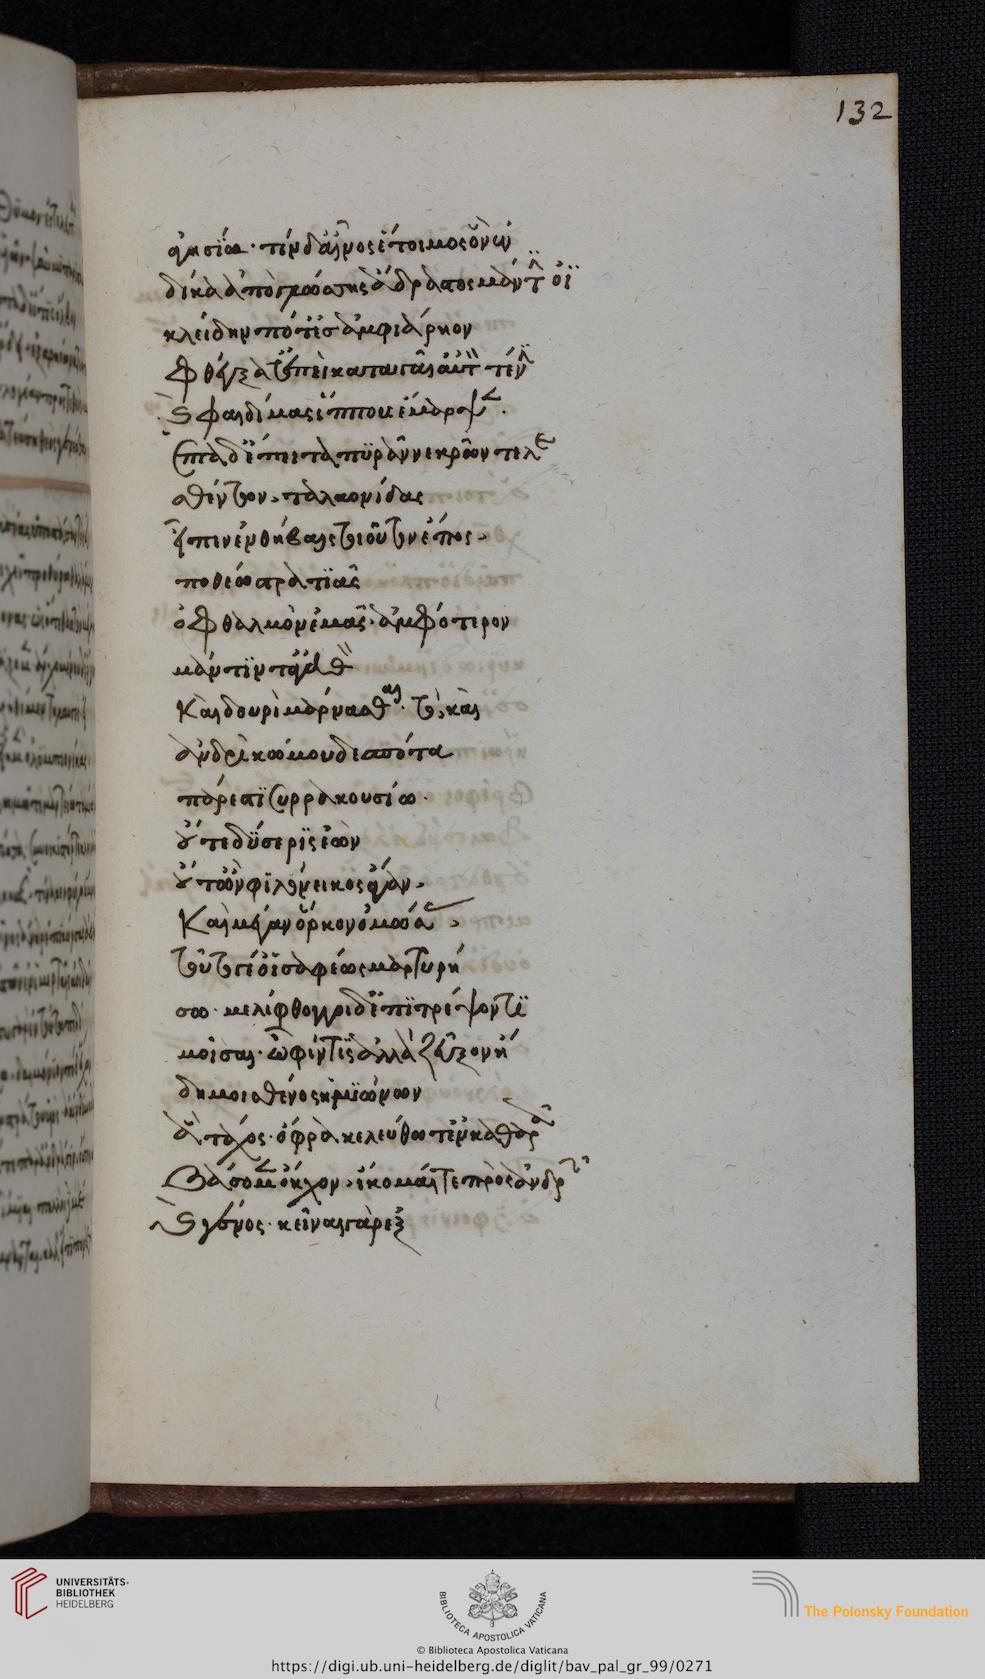 132
ἁγησία. τὶν δ' αἶνος ἑτοῖμος ὃν ἐν
δίκᾳ ἀπὸ γλώσσης ἄδραστος μάντιν οἰ
κλείδην ποτ' ἐς ἀμφιάρηον
φθέγξατ' ἐπεὶ κατὰ γαῖ' αὐτόν τέ νιν
φαιδίμας ἵππους ἔμαρψεν.
ἑπτὰ δ' ἔπειτα πυρᾶν νεκρῶν τελε
σθέντων. ταλαονίδας
εἶπεν ἐν θήβαισι τοιοῦτόν τι ἔπος.
ποθέω στρατιᾶς
ὀφθαλμὸν ἐμᾶς. ἀμφότερον
μάντιν τ' ἀγαθὸν
καὶ δουρὶ μάρνασθαι. τὸ καὶ
ἀνδρὶ κώμου δεσπότᾳ
πάρεστι συρρακουσίῳ.
οὔτε δύσερις ἐὼν
οὔτ' ὢν φιλόνεικος ἄγαν.
καὶ μέγαν ὅρκον ὀμόσσας.
τοῦτό γέ οἱ σαφέως μαρτυρή
σω. μελίφθογγοι δ' ἐπιτρέψοντι
μοῖσαι. ὦ φίντις ἀλλὰ ζεῦξον ἤ
δη μοι σθένος ἡμιόνων
ᾇ τάχος. ὄφρα κελεύθῳ τ' ἐν καθαρᾷ
βάσομεν ὄκχον. ἵκωμαί τε πρὸς ἀνδρῶν
γένος. κεῖναι γὰρ ἐξ
UNIVERSITÄTS-
BIBLIOTHEK
HEIDELBERG
BIBLIOTECA APOSTOLICA VATICANA
The Polonsky Foundation
© Biblioteca Apostolica Vaticana
https://digi.ub.uni-heidelberg.de/diglit/bav_pal_gr_99/0271